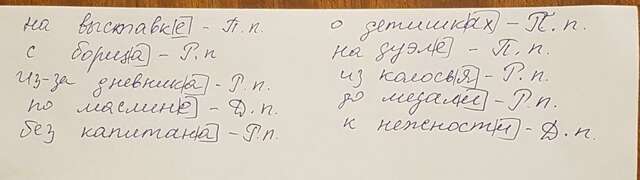 на выставке – П.п.
с борща – Р.п
из-за дневника – Р.п.
по маслине – Д.п.
без капитана – Р.п.
о детишках – П.п.
на дуэле – П.п.
из колосья – Р.п.
до медали – Р.п.
к нежности – Д.п.